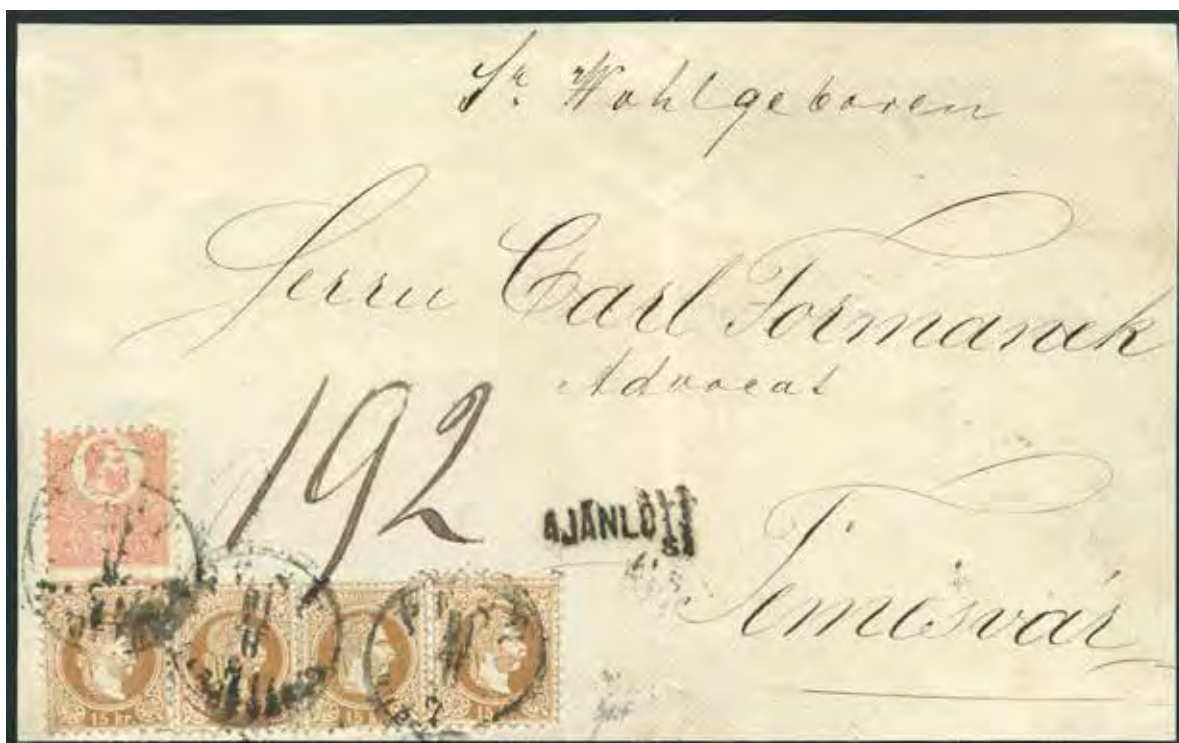 Sr. Wohlgeboren
Herrn Carl Formanek
Advocat
192
AJÁNLOTT
Temesvár
15 kr. 15 kr. 15